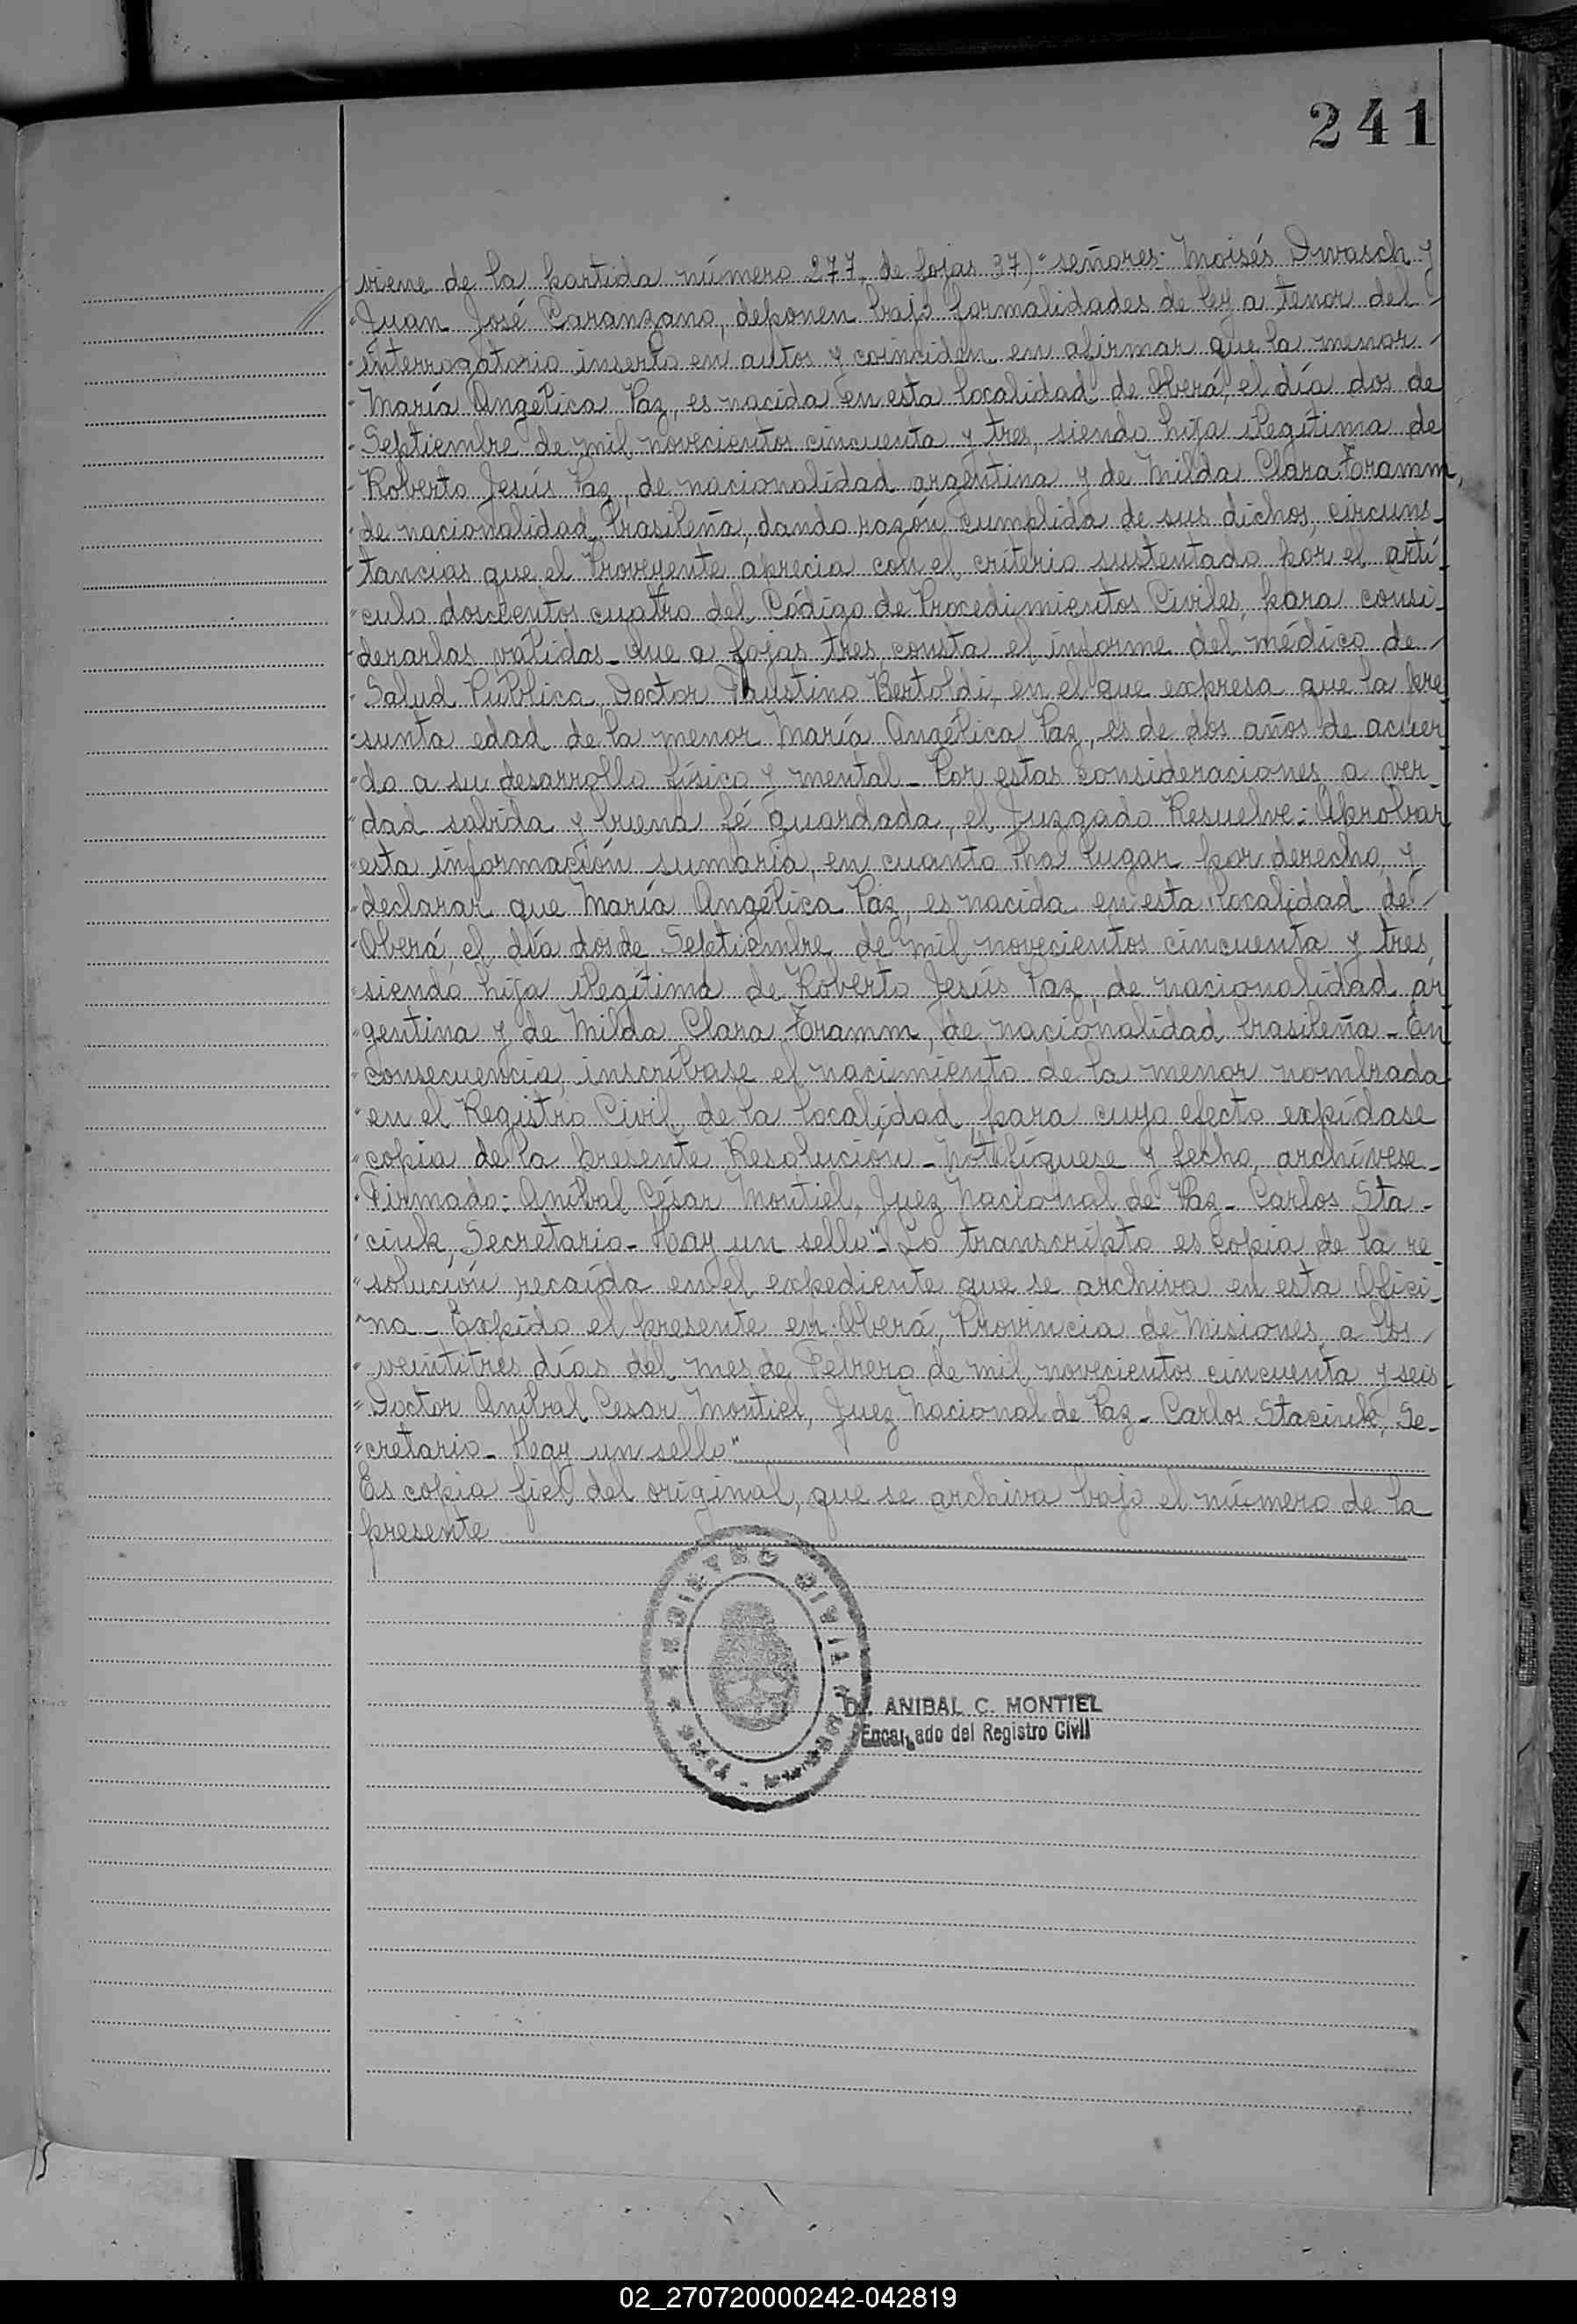 241
viene de la partida número 277, de fojas 37) "señores: Moisés Owasch y
"Juan José Paranzano, deponen bajo formalidades de ley a tenor del
"interrogatorio inserto en autos y coinciden en afirmar que la menor
"María Angélica Paz, es nacida en esta localidad de Oberá, el día dos de
"Septiembre de mil novecientos cincuenta y tres, siendo hija ilegítima de
"Roberto Jesús Paz, de nacionalidad argentina y de Milda Clara Framm,
"de nacionalidad brasileña, dando razón cumplida de sus dichos, circuns-
"tancias que el Proveyente aprecia con el criterio sustentado por el artí-
"culo doscientos cuatro del Código de Procedimientos Civiles, para consi-
"derarlas válidas_ Que a fojas tres, consta el informe del médico de
"Salud Pública, Doctor Faustino Bertoldi, en el que expresa que la pre
"sunta edad de la menor María Angélica Paz, es de dos años de acuer
"do a su desarrollo físico y mental_ Por estas consideraciones, a ver-
"dad sabida y buena fé guardada, el Juzgado Resuelve: Aprobar
"esta información sumaria, en cuanto ha lugar por derecho, y
"declarar que María Angélica Paz, es nacida en esta localidad de
"Oberá, el día dos de Septiembre de mil novecientos cincuenta y tres
"siendo hija ilegítima de Roberto Jesús Paz, de nacionalidad ar
"gentina y de Milda Clara Framm, de nacionalidad brasileña_ En
"consecuencia, inscríbase el nacimiento de la menor nombrada
"en el Registro Civil de la localidad, para cuyo efecto expídase
"copia de la presente Resolución_ Notifíquese y fecho, archívese_
"Firmado: Aníbal César Montiel, Juez Nacional de Paz_ Carlos Sta-
"ciuk, Secretario_ Hay un sello"_ Lo transcripto es copia de la re
"solución recaída en el expediente que se archiva en esta Ofici-
"na_ Expido el presente en Oberá, Provincia de Misiones, a los
"veintitres días del mes de Febrero de mil novecientos cincuenta y seis
"Doctor Anibal Cesar Montiel, Juez Nacional de Paz_ Carlos Staciuk, Se-
"cretario_ Hay un sello"
Es copia fiel del original, que se archiva bajo el número de la
presente
REGISTRO CIVIL
Dr. ANIBAL C. MONTIEL
Encargado del Registro Civil
02_270720000242-042819